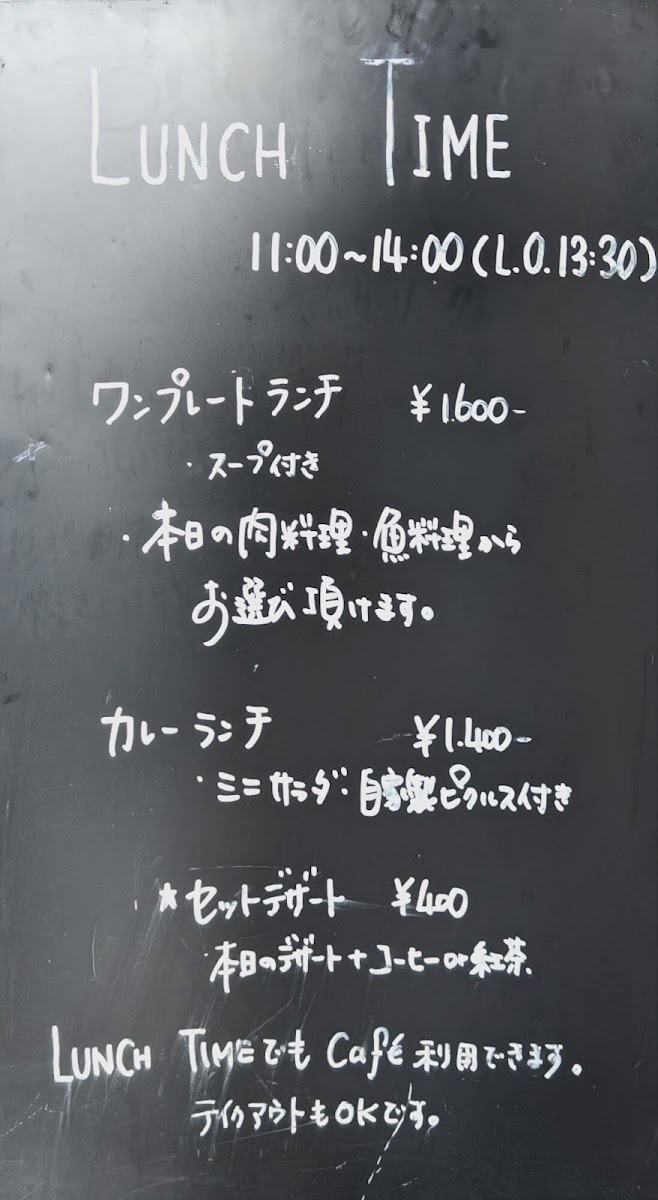 LUNCH TIME
11:00~14:00(L.O.13:30)
ワンプレートランチ ¥1.600-
・スープ付き
・本日の肉料理・魚料理から
お選び頂けます。
カレーランチ ¥1.400-
・ミニサラダ・自家製ピクルス付き
★セットデザート ¥400
・本日のデザート+コーヒーor紅茶
LUNCH TIMEでも Café 利用できます。
テイクアウトもOKです。